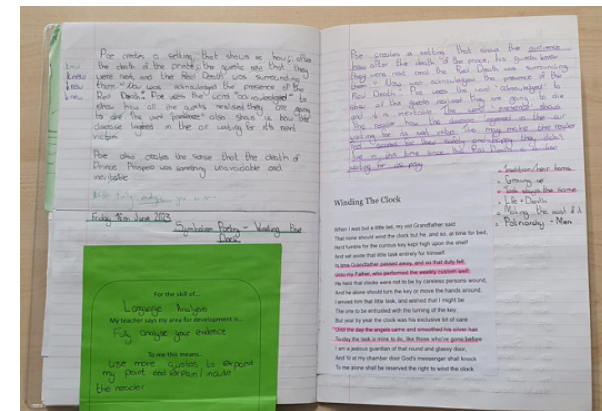 Poe creates a setting that shows us how, after
the death of the prince, the guests knew that they
were next and the Red Death was surrounding
them. "Now was acknowledged the presence of the
Red Death." Poe uses the word "acknowledged" to
show how all the guests realised they are going
to die. The word "presence" also shows us how the
disease lingered in the air waiting for its next
victim.
knew
knew
knew
Poe also creates the sense that the death of
Prince Prospero was something unavoidable and
inevitable
Friday 16th June 2023
Symbolism Poetry - Winding the
Clock
For the skill of...
Language Analysis
My teacher says my area for development is...
Fully analyse your evidence
To me this means...
Use more quotes to expand
my point and explain / include
the reader
Poe creates a setting that shows the audience
how after the death of the prince, his guests knew
they were next and the Red Death was surrounding
them. "Now was acknowledged the presence of the
Red Death." Poe uses the word "acknowledged" to
show all the guests realised they are going to die
and it is inevitable. The word "presence" shows
the reader how the disease lingered in the air
waiting for its next victim. This may make the reader
feel scared for their safety and
waiting for its prey.
Winding The Clock
When I was but a little lad, my old Grandfather said
That none should wind the clock but he, and so, at time for bed,
He'd fumble for the curious key kept high upon the shelf
And set aside that little task entirely for himself.
In time Grandfather passed away, and so that duty fell
Unto my Father, who performed the weekly custom well;
He held that clocks were not to be by careless persons wound,
And he alone should turn the key or move the hands around.
I envied him that little task, and wished that I might be
The one to be entrusted with the turning of the key;
But year by year the clock was his exclusive bit of care
Until the day the angels came and smoothed his silver hair.
To-day the task is mine to do, like those who've gone before
I am a jealous guardian of that round and glassy door,
And 'til at my chamber door God's messenger shall knock
To me alone shall be reserved the right to wind the clock.
Growing up
Task stays the same
Life + Death
Making the most of it
Patriarchy - Men